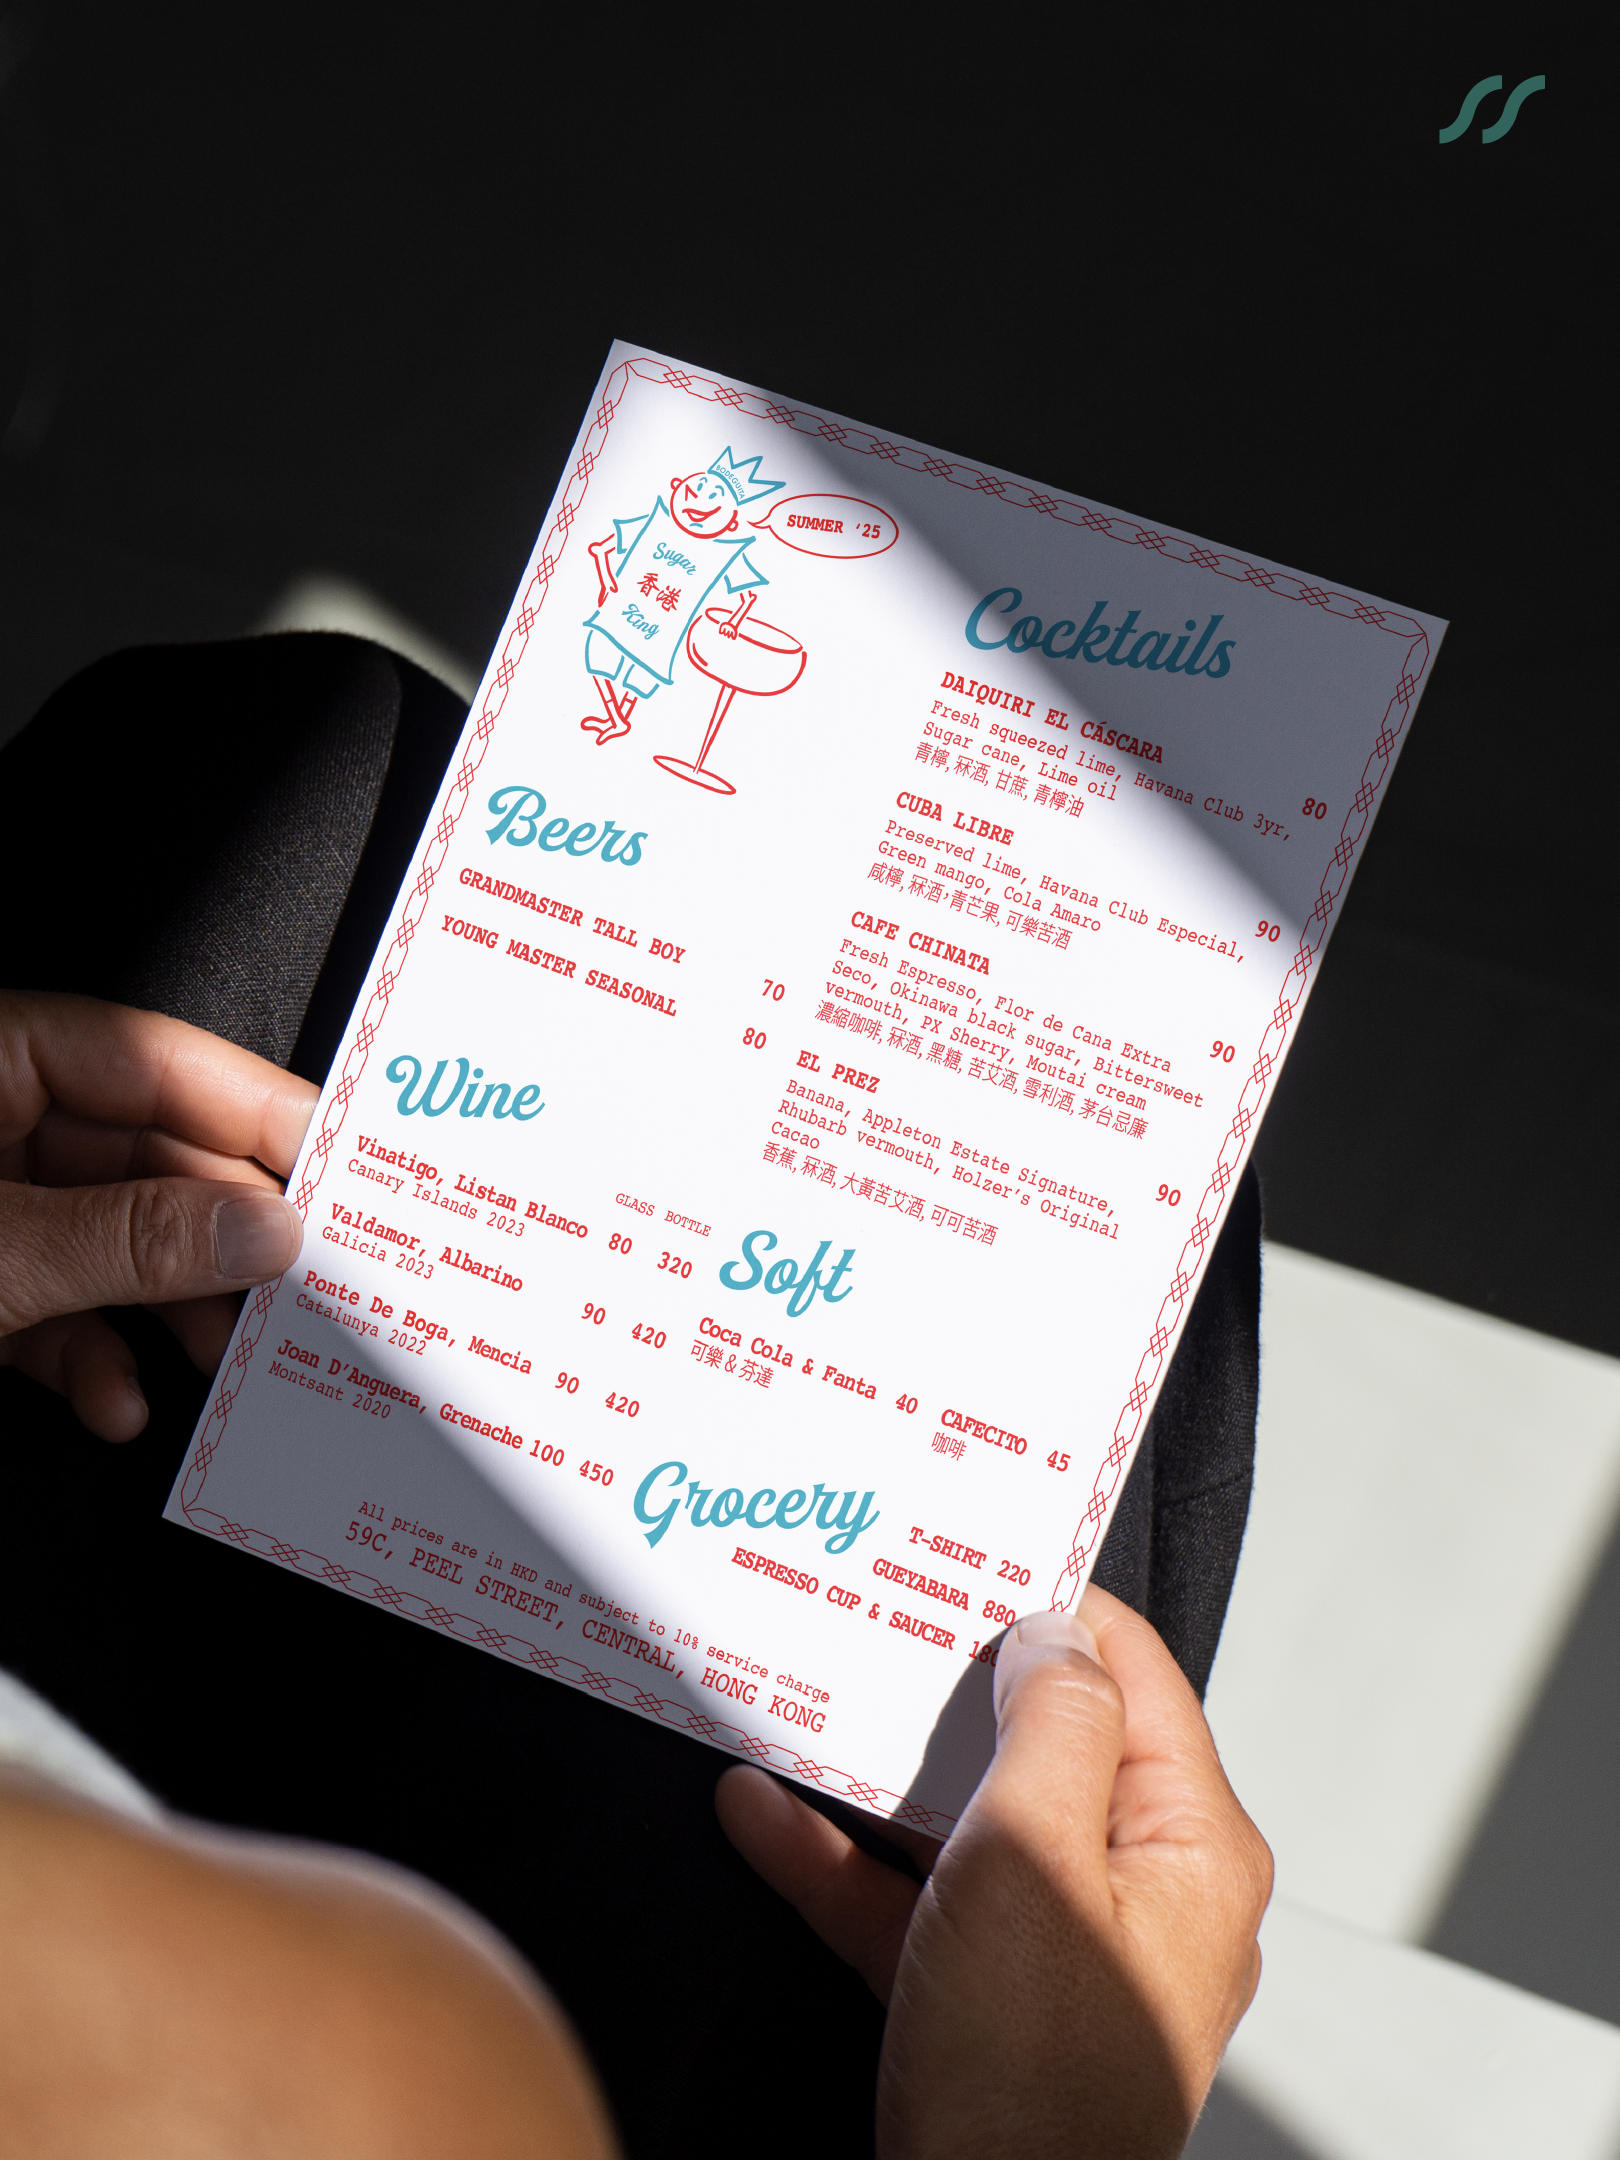 BODEGUITA
SUMMER '25
Sugar
香港
King
Beers
GRANDMASTER TALL BOY 70
YOUNG MASTER SEASONAL 80
Wine
GLASS BOTTLE
Vinatigo, Listan Blanco 80 320
Canary Islands 2023
Valdamor, Albarino 90 420
Galicia 2023
Ponte De Boga, Mencia 90 420
Catalunya 2022
Joan D'Anguera, Grenache 100 450
Montsant 2020
Cocktails
DAIQUIRI EL CÁSCARA 80
Fresh squeezed lime, Havana Club 3yr,
Sugar cane, Lime oil
青檸, 冧酒, 甘蔗, 青檸油
CUBA LIBRE 90
Preserved lime, Havana Club Especial,
Green mango, Cola Amaro
咸檸, 冧酒,青芒果, 可樂苦酒
CAFE CHINATA 90
Fresh Espresso, Flor de Cana Extra
Seco, Okinawa black sugar, Bittersweet
vermouth, PX Sherry, Moutai cream
濃縮咖啡, 冧酒, 黑糖, 苦艾酒, 雪利酒, 茅台忌廉
EL PREZ 90
Banana, Appleton Estate Signature,
Rhubarb vermouth, Holzer's Original
Cacao
香蕉, 冧酒, 大黃苦艾酒, 可可苦酒
Soft
Coca Cola & Fanta 40
可樂 & 芬達
CAFECITO 45
咖啡
Grocery
T-SHIRT 220
GUEYABARA 880
ESPRESSO CUP & SAUCER 180
All prices are in HKD and subject to 10% service charge
59C, PEEL STREET, CENTRAL, HONG KONG